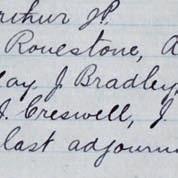 Arthur JP.
Rouestone, A
May J Bradley,
J. Creswell, J
last adjourn